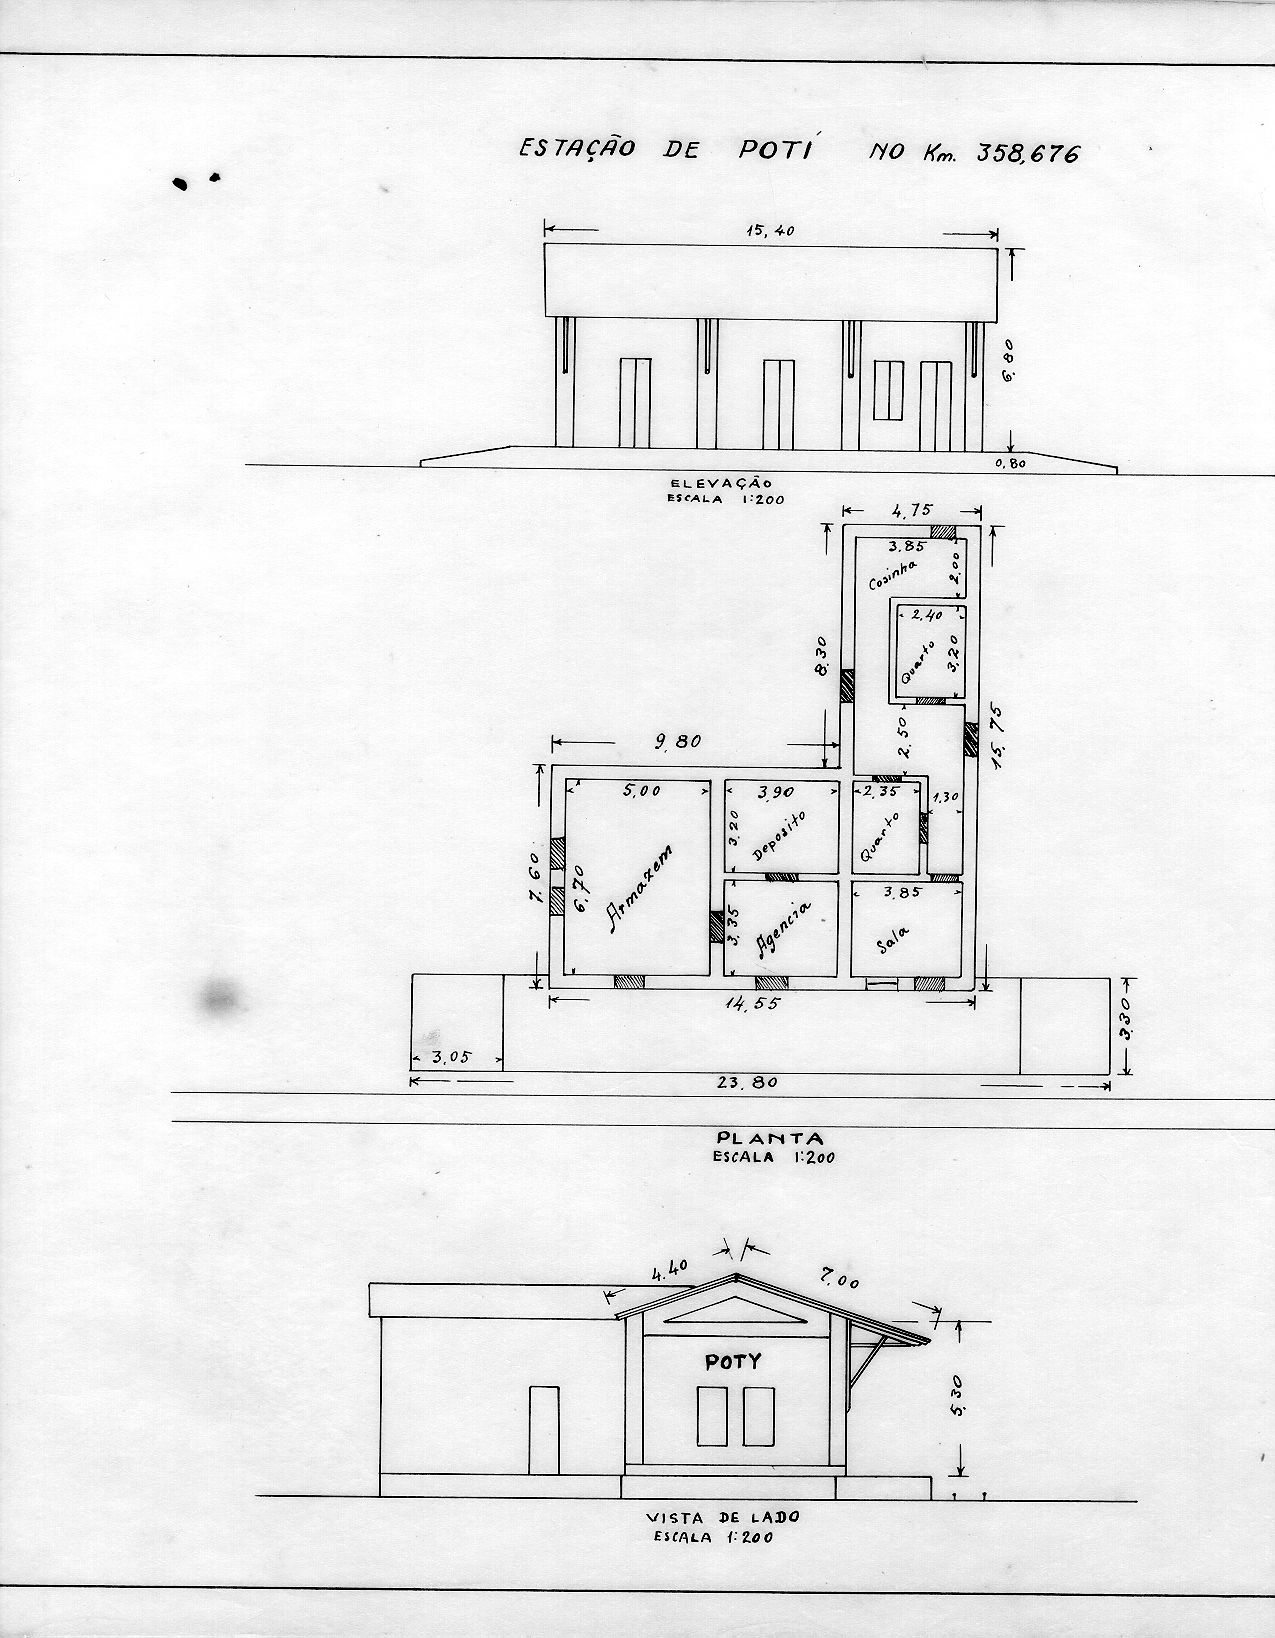 ESTAÇÃO DE POTÍ NO Km. 358,676
15,40
6.80
0,80
ELEVAÇÃO
ESCALA 1:200
4,75
3,85
Cosinha
2,00
2,40
Quarto
3,20
8.30
2,50
15,75
9,80
5,00
3,90
2,35
1,30
3,20
Deposito
Quarto
7.60
6,70
Armazem
3,35
Agencia
3,85
Sala
14,55
3,30
3,05
23,80
PLANTA
ESCALA 1:200
4.40
7,00
POTY
5,30
VISTA DE LADO
ESCALA 1:200